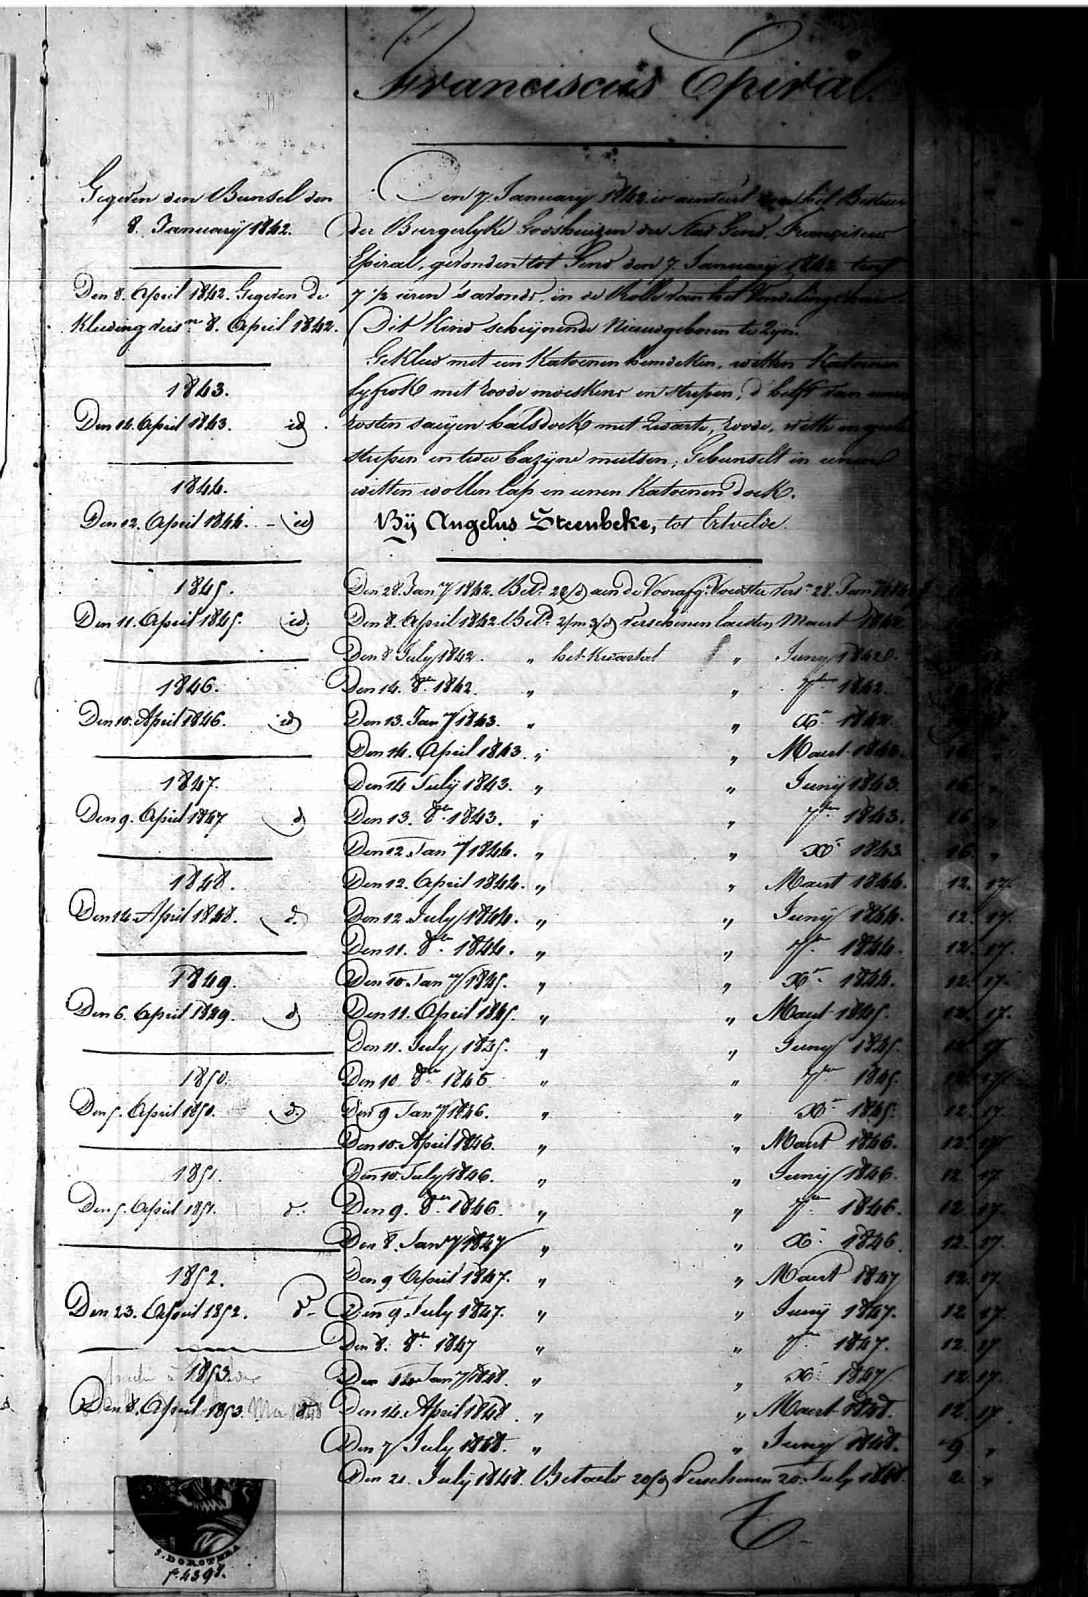 Franciscus Epiral.
Gegeven den Bunsel den
8. January 1842.
Den 8. April 1842. Gegeven de
Kleeding 8. April 1842.
1843.
Den 14. April 1843. id
1844.
Den 12. April 1844. - id
1845.
Den 11. April 1845. id
1846.
Den 10. April 1846. id
1847.
Den 9. April 1847 d
1848.
Den 14. April 1848. d.
1849.
Den 6. April 1849. d
1850.
Den 5. April 1850. d.
1851.
Den 5. April 1851. d.
1852.
Den 23. April 1852. d-
1853.
Den 8. April 1853. d
Den 7. January 1842 is aenveird door het Bestier
der Burgerlyke Godshuizen der Stad Gend, Franciscus
Epiral, gevonden tot Gend den 7 January 1842 ten
7 1/2 uren 's avonds, in de Rolle van het Vondelingshuis
Dit Kind schijnende Nieuwgeboren te Zijn.
Gekleed met een Katoenen hemdeken, witten Katoenen
lyfrok met roode moeskens en strepen, d'helft van eenen
rosten saeyen halsdoek met Zwarte, roode, witte en geele
strepen en twee bazyne mutsen; Gebunselt in eenen
witten wollen lap en eenen Katoenen doek.
Bij Angelus Steenbeke, tot Ertvelde.
Den 28. Jan.y 1842. Bet.d aen de Voorafg. Voedster 28. Jan.y
Den 8. April 1842 Bet.d verschenen laesten Maert 1842
Den 8 July 1842. " het Kwartael " Juny 1842.
Den 14. 8.er 1842. " " 7.ber 1842.
Den 13. Jan.y 1843. " " X.r 1842.
Den 14. April 1843. " " Maert 1843.
Den 14 July 1843. " " Juny 1843. 16 "
Den 13. 8.er 1843. " " 7.ber 1843. 16 "
Den 12 Jan.y 1844. " " X.r 1843 16 "
Den 12. April 1844. " " Maert 1844. 12. 17.
Den 12 July 1844. " " Juny 1844. 12. 17.
Den 11. 8.er 1844. " " 7.ber 1844. 12. 17.
Den 10 Jan.y 1845. " " X.r 1844. 12. 17.
Den 11. April 1845. " " Maert 1845. 12. 17.
Den 11. July 1845. " " Juny 1845. 12 17
Den 10. 8.er 1845 " " 7.ber 1845. 12 17
Den 9 Jan.y 1846. " " X.r 1845. 12. 17
Den 10. April 1846. " " Maert 1846. 12. 17
Den 10. July 1846. " " Juny 1846. 12. 17
Den 9. 8.er 1846. " " 7.ber 1846. 12. 17.
Den 8. Jan.y 1847 " " X.r 1846. 12. 17.
Den 9 April 1847. " " Maert 1847 12. 17.
Den 9 July 1847. " " Juny 1847. 12. 17.
Den 8. 8.er 1847 " " 7.ber 1847. 12. 17
Den 14 Jan.y 1848. " " X.r 1847 12. 17.
Den 14. April 1848. " " Maert 1848. 12. 17
Den 7 July 1848. " " Juny 1848. 9 "
Den 21. July 1848. Betaeld 20/d Verschenen 20. July 1848. 2. "
S. DOROTHEA
f.° 4398.